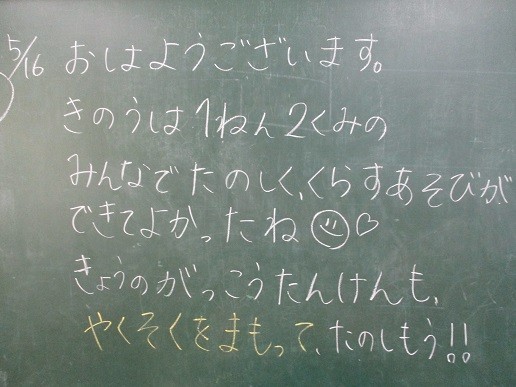 5/16 おはようございます。
きのうは1ねん2くみの
みんなでたのしく、くらすあそびが
できてよかったね
きょうのがっこうたんけんも、
やくそくをまもって、たのしもう!!